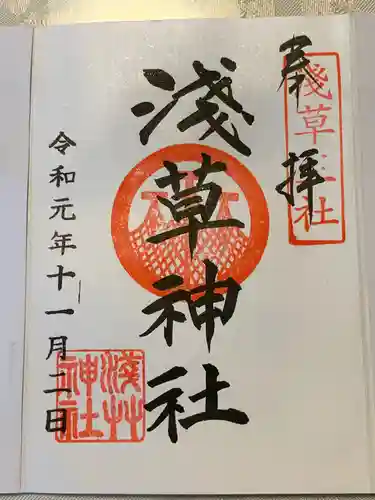 奉拝
淺草神社
淺草神社
令和元年十一月二日
淺草神社